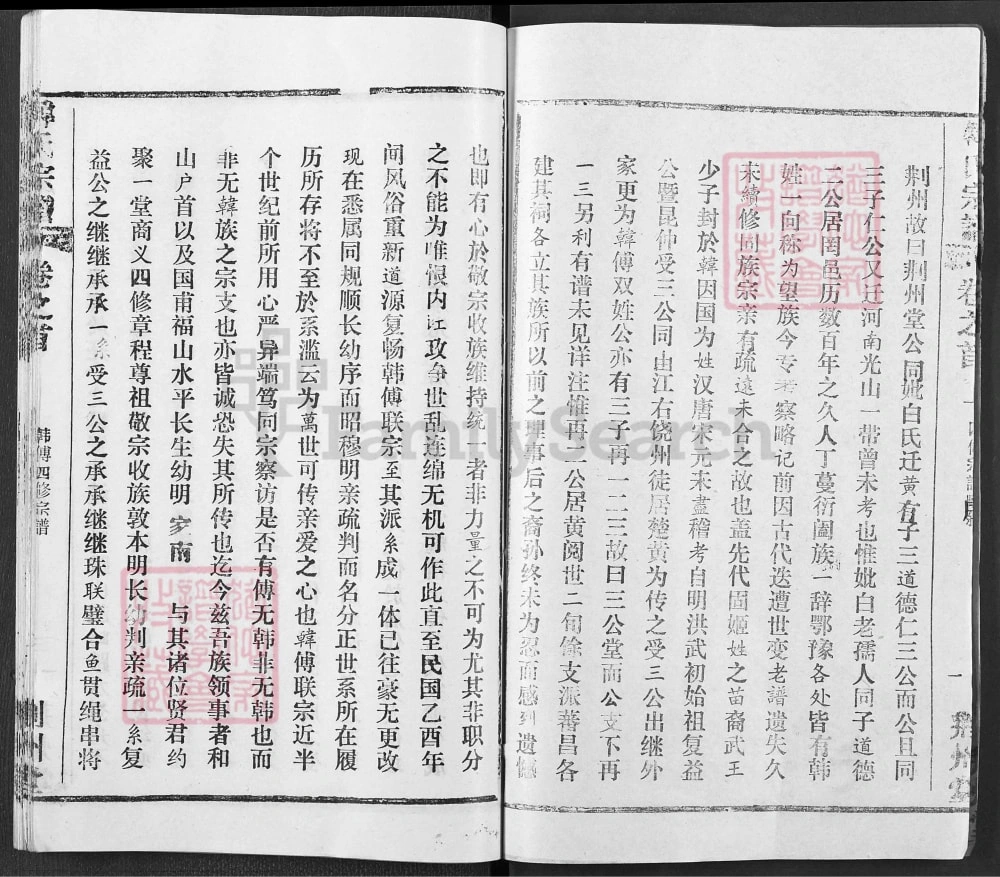 韓氏宗譜 卷之首 一 荆州堂
荆州故曰荆州堂公同妣白氏迁黄有子三道德仁三公而公且同
三子仁公又迁河南光山一带曾未考也惟妣白老孺人同子道德
二公居岡邑历数百年之久人丁蔓衍阖族一辞鄂豫各处皆有韩
姓一向称为望族今专来察略记前因古代迭遭世变老譜遗失久
未續修同族宗亲有疏远未合之故也盖先代固姬姓之苗裔武王
少子封於韓因国为姓汉唐宋元未盡稽考自明洪武初始祖复益
公暨昆仲受三公同由江右饶州徒居楚黄为传之受三公出继外
家更为韓傅双姓公亦有三子再一二三故曰三公堂而公支下再
一三另利有谱未见详注惟再二公居黄阅世二旬馀支派蕃昌各
建其祠各立其族所以前之理事后之裔孙终未为忍而感到遗憾
也即有心於敬宗收族维持统一者非力量之不可为尤其非职分
之不能为唯恨内讧攻争世乱连绵无机可作此直至民国乙酉年
间风俗重新道源复畅韩傅联宗至其派系成一体已往豪无更改
现在悉属同规顺长幼序而昭穆明亲疏判而名分正世系所在履
历所存将不至於系滥云为萬世可传亲爱之心也韓傅联宗近半
个世纪前所用心严异端笃同宗察访是否有傅无韩非无韩也而
非无韓族之宗支也亦皆诚恐失其所传也迄今兹吾族领事者和
山户首以及国甫福山水平长生幼明 家南 与其诸位贤君约
聚一堂商义四修章程尊祖敬宗收族敦本明长幼判亲疏一系复
益公之继继承承一系受三公之承承继继珠联璧合鱼贯绳串将
韓氏宗譜 卷之首 韩傅四修宗谱 荆州堂